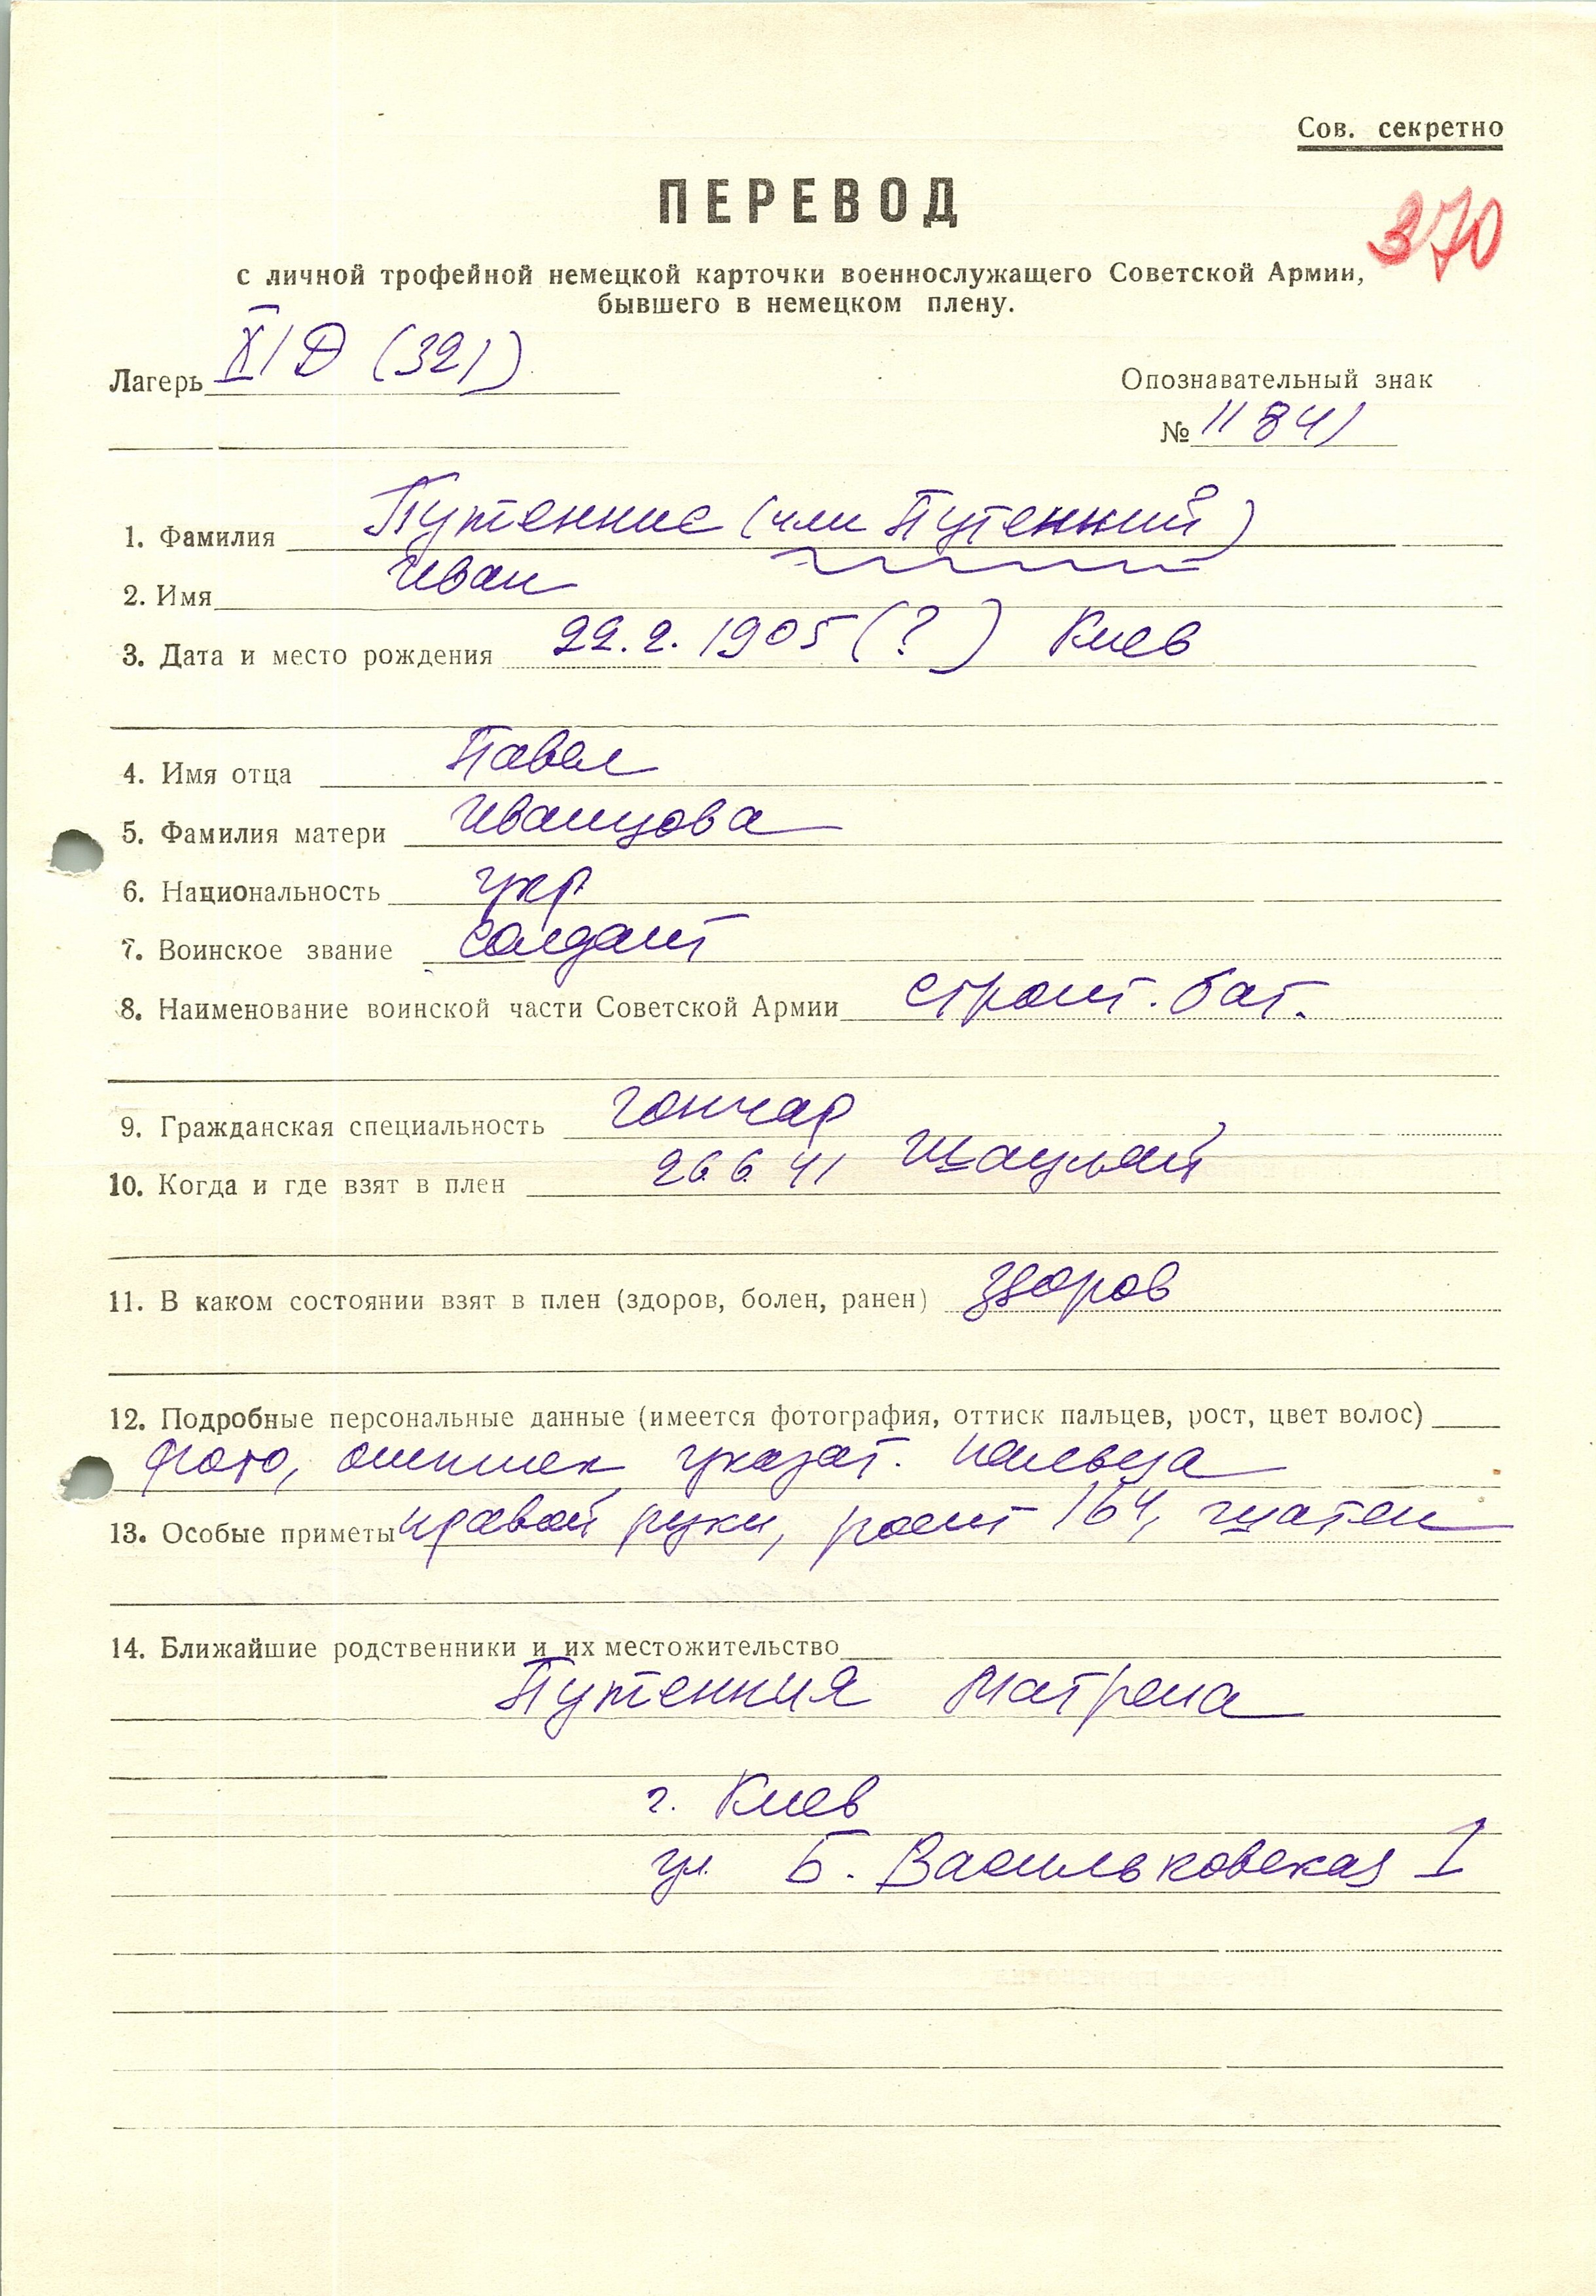 Сов. секретно
ПЕРЕВОД
370
с личной трофейной немецкой карточки военнослужащего Советской Армии,
бывшего в немецком плену.
Лагерь XI D (321)
Опознавательный знак
№ 11841
1. Фамилия Путенние (или Путенний)
2. Имя Иван
3. Дата и место рождения 22.2.1905 (?) Киев
4. Имя отца Павел
5. Фамилия матери Иванцова
6. Национальность укр
7. Воинское звание солдат
8. Наименование воинской части Советской Армии строит. бат.
9. Гражданская специальность гончар
10. Когда и где взят в плен 26 6 41 Шауляй
11. В каком состоянии взят в плен (здоров, болен, ранен) здоров
12. Подробные персональные данные (имеется фотография, оттиск пальцев, рост, цвет волос)
фото, оттиск указат. пальца
13. Особые приметы правой руки, рост 164, шатен
14. Ближайшие родственники и их местожительство
Путенния Матрена
г. Киев
ул. Б. Васильковская 1